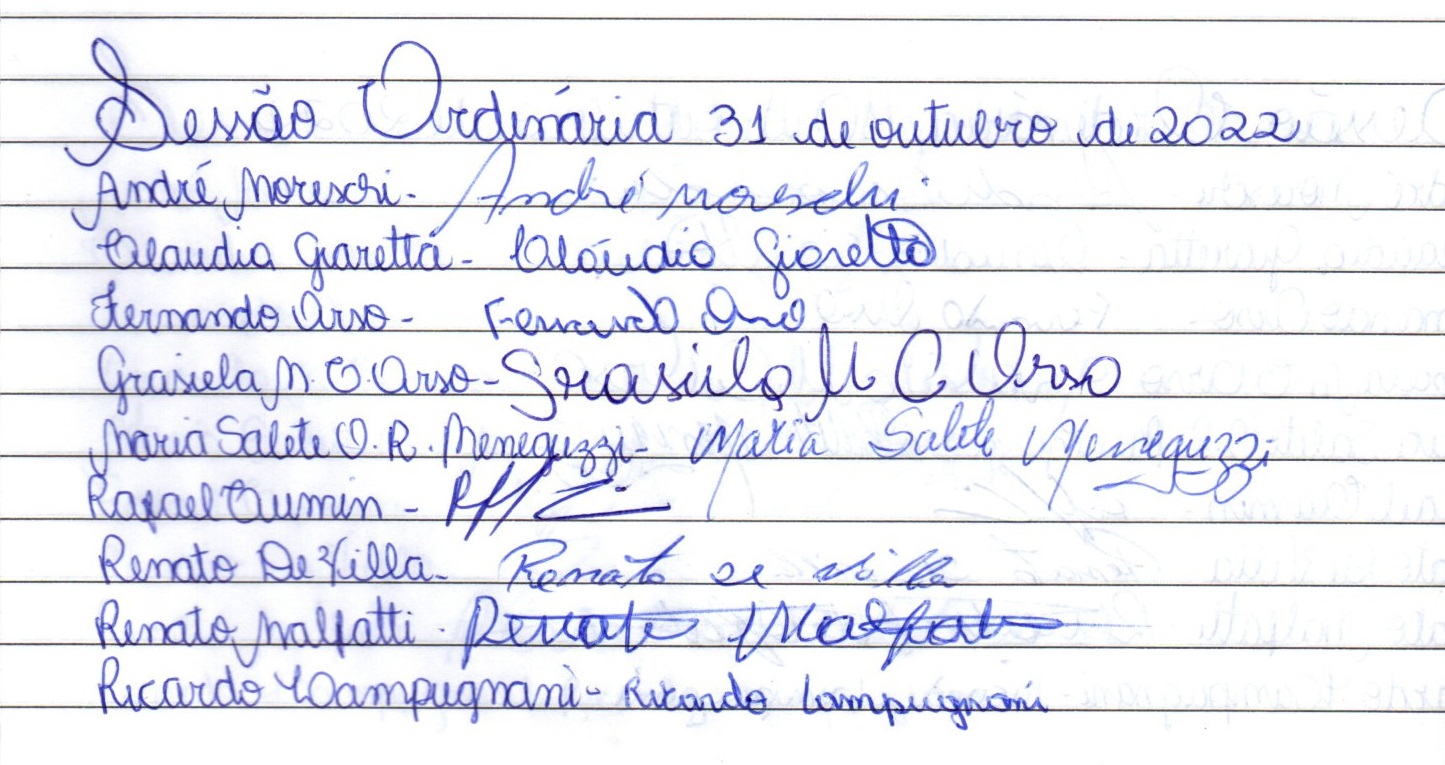 Sessão Ordinária 31 de outubro de 2022
André Moreschi - André Moreschi
Claudia Giaretta - Claudio Giaretta
Fernando Orso - Fernando Orso
Grasiela M. C. Orso - Grasiela M C Orso
Maria Salete O. R. Meneguzzi - Maria Salete Meneguzzi
Rafael -
Renato De Villa - Renato de Villa
Renato Malfatti - Renato Malfatti
Ricardo Lampugnani - Ricardo Lampugnani